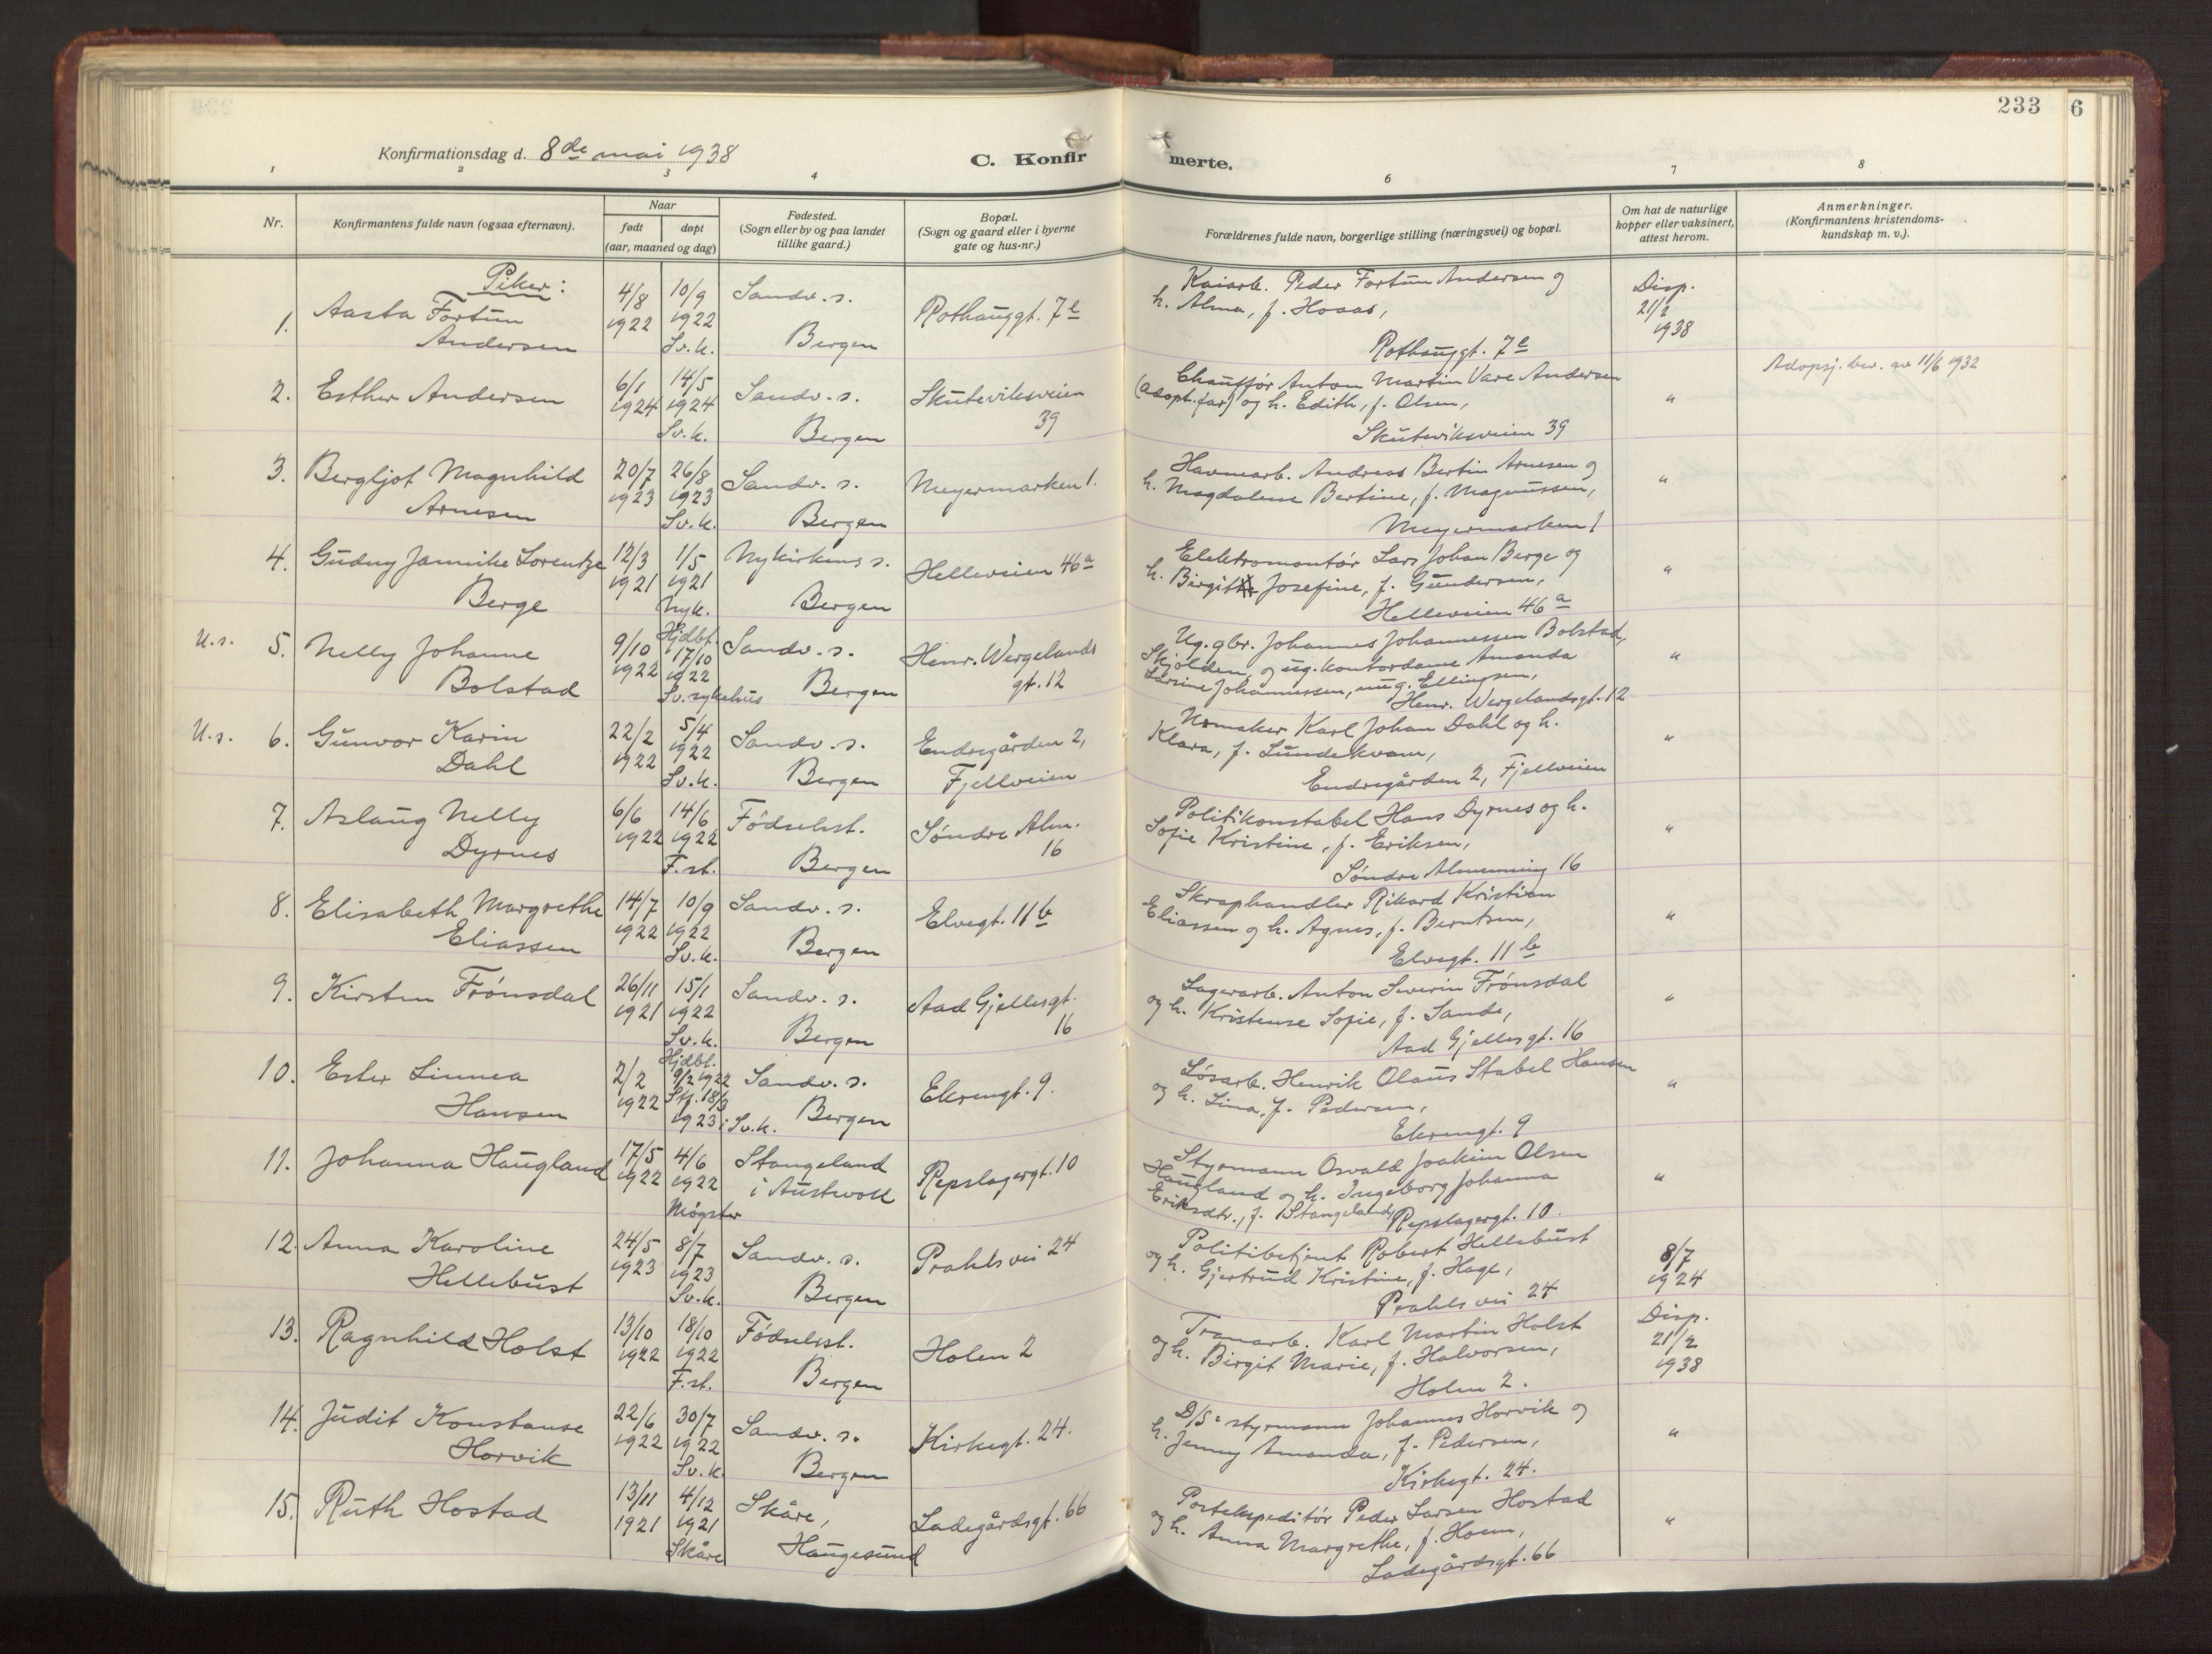 233 6
Konfirmationsdag d. 8de mai 1938
C. Konfirmerte.
1 2 3 4 6 7 8
Nr.
Konfirmantens fulde navn (ogsaa efternavn).
Naar
født
døpt
(aar, maaned og dag)
Fødested.
(Sogn eller by og paa landet
tillike gaard.)
Bopæl.
(Sogn og gaard eller i byerne
gate og hus-nr.)
Forældrenes fulde navn, borgerlige stilling (næringsvei) og bopæl.
Om hat de naturlige
kopper eller vaksinert,
attest herom.
Anmerkninger.
(Konfirmantens kristendoms-
kundskap m. v.).
Piker:
1. Aasta Fortun
Andersen
4/8
1922
10/9
1922
Sv.k.
Sandv. s.
Bergen
Rothauggt. 7e
Kaiarb. Peder Fortun Andersen og
h. Alma, f. Hoaas,
Rothauggt. 7e
Disp.
21/2
1938
2. Esther Andersen
6/1
1924
14/5
1924
Sv.k.
Sandv. s.
Bergen
Skuteviksveien
39
Chauffør Anton Martin Vare Andersen
(adopt.far) og h. Edith, f. Olsen,
Skuteviksveien 39
"
Adopsj. bev. av 11/6 1932
3. Bergljot Magnhild
Arnesen
20/7
1923
26/8
1923
Sv.k.
Sandv. s.
Bergen
Meyermarken 1.
Havnearb. Andreas Bertin Arnesen og
h. Magdalene Bertine, f. Magnussen,
Meyermarken 1
"
4. Gudny Jannike Lorentze
Berge
12/3
1921
1/5
1921
Nyk.
Nykirkens s.
Bergen
Helleveien 46a
Elektromontør Lars Johan Berge og
h. Birgit Josefine, f. Gundersen,
Helleveien 46a
"
U.s. 5. Nelly Johanne
Bolstad
9/10
1922
Hjdbt.
17/10
1922
Sv. sykehus
Sandv. s.
Bergen
Henr. Wergelands
gt. 12
Ug. gbr. Johannes Johannessen Bolstad,
Skjolden, og ug. kontordame Amanda
Larsine Johannessen, nug. Ellingsen,
Henr. Wergelandsgt. 12
"
U.s. 6. Gunvor Karin
Dahl
22/2
1922
5/4
1922
Sv.k.
Sandv. s.
Bergen
Endregården 2,
Fjellveien
Urmaker Karl Johan Dahl og h.
Klara, f. Lundekvam,
Endregården 2, Fjellveien
"
7. Aslaug Nelly
Dyrnes
6/6
1922
14/6
1922
F.st.
Fødselsst.
Bergen
Søndre Alm.
16
Politikonstabel Hans Dyrnes og h.
Sofie Kristine, f. Eriksen,
Søndre Almenning 16
"
8. Elisabeth Margrethe
Eliassen
14/7
1922
10/9
1922
Sv.k.
Sandv. s.
Bergen
Elvegt. 11b
Skraphandler Rikard Kristian
Eliassen og h. Agnes, f. Berntsen,
Elvegt. 11b
"
9. Kirsten Frønsdal
26/11
1921
15/1
1922
Sv.k.
Sandv. s.
Bergen
Aad Gjellesgt.
16
Lagerarb. Anton Severin Frønsdal
og h. Kristense Sofie, f. Sande,
Aad Gjellesgt. 16
"
10. Ester Linnea
Hansen
2/2
1922
Hjdbt.
9/2 1922
Stf. 18/3
1923 i Sv.k.
Sandv. s.
Bergen
Ekrengt. 9.
Løsarb. Henrik Olaus Stabel Hansen
og h. Lina, f. Pedersen,
Ekrengt. 9
"
11. Johanna Haugland
17/5
1922
4/6
1922
Møgster
Stangeland
i Austevoll
Repslagergt. 10
Styrmann Osvald Joakim Olsen
Haugland og h. Ingeborg Johanna
Eriksdtr., f. Stangeland,
Repslagergt. 10.
"
12. Anna Karoline
Hellebust
24/5
1923
8/7
1923
Sv.k.
Sandv. s.
Bergen
Prahls vei 24
Politibetjent Robert Hellebust
og h. Gjertrud Kristine, f. Hage,
Prahls vei 24
8/7
1924
13. Ragnhild Holst
13/10
1922
18/10
1922
F.st.
Fødselsst.
Bergen
Holen 2
Tranarb. Karl Martin Holst
og h. Birgit Marie, f. Halvorsen,
Holen 2.
Disp.
21/2
1938
14. Judit Konstanse
Horvik
22/6
1922
30/7
1922
Sv.k.
Sandv. s.
Bergen
Kirkegt. 24.
D/S styrmann Johannes Horvik og
h. Jenny Amanda, f. Pedersen,
Kirkegt. 24.
"
15. Ruth Hostad
13/11
1921
4/12
1921
Skåre
Skåre,
Haugesund
Ladegårdsgt. 66
Postekspeditør Peder Larsen Hostad
og h. Anna Margrethe, f. Hoem,
Ladegårdsgt. 66
"